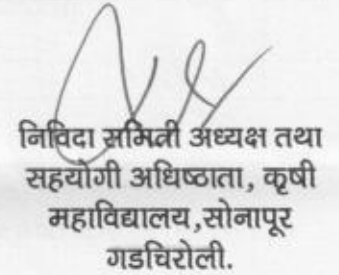 निविदा समिती अध्यक्ष तथा
सहयोगी अधिष्ठाता, कृषी
महाविद्यालय,सोनापूर
गडचिरोली.